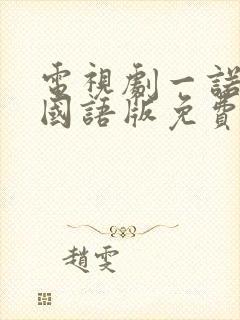 電視劇一諾
國語版免費
趙雯